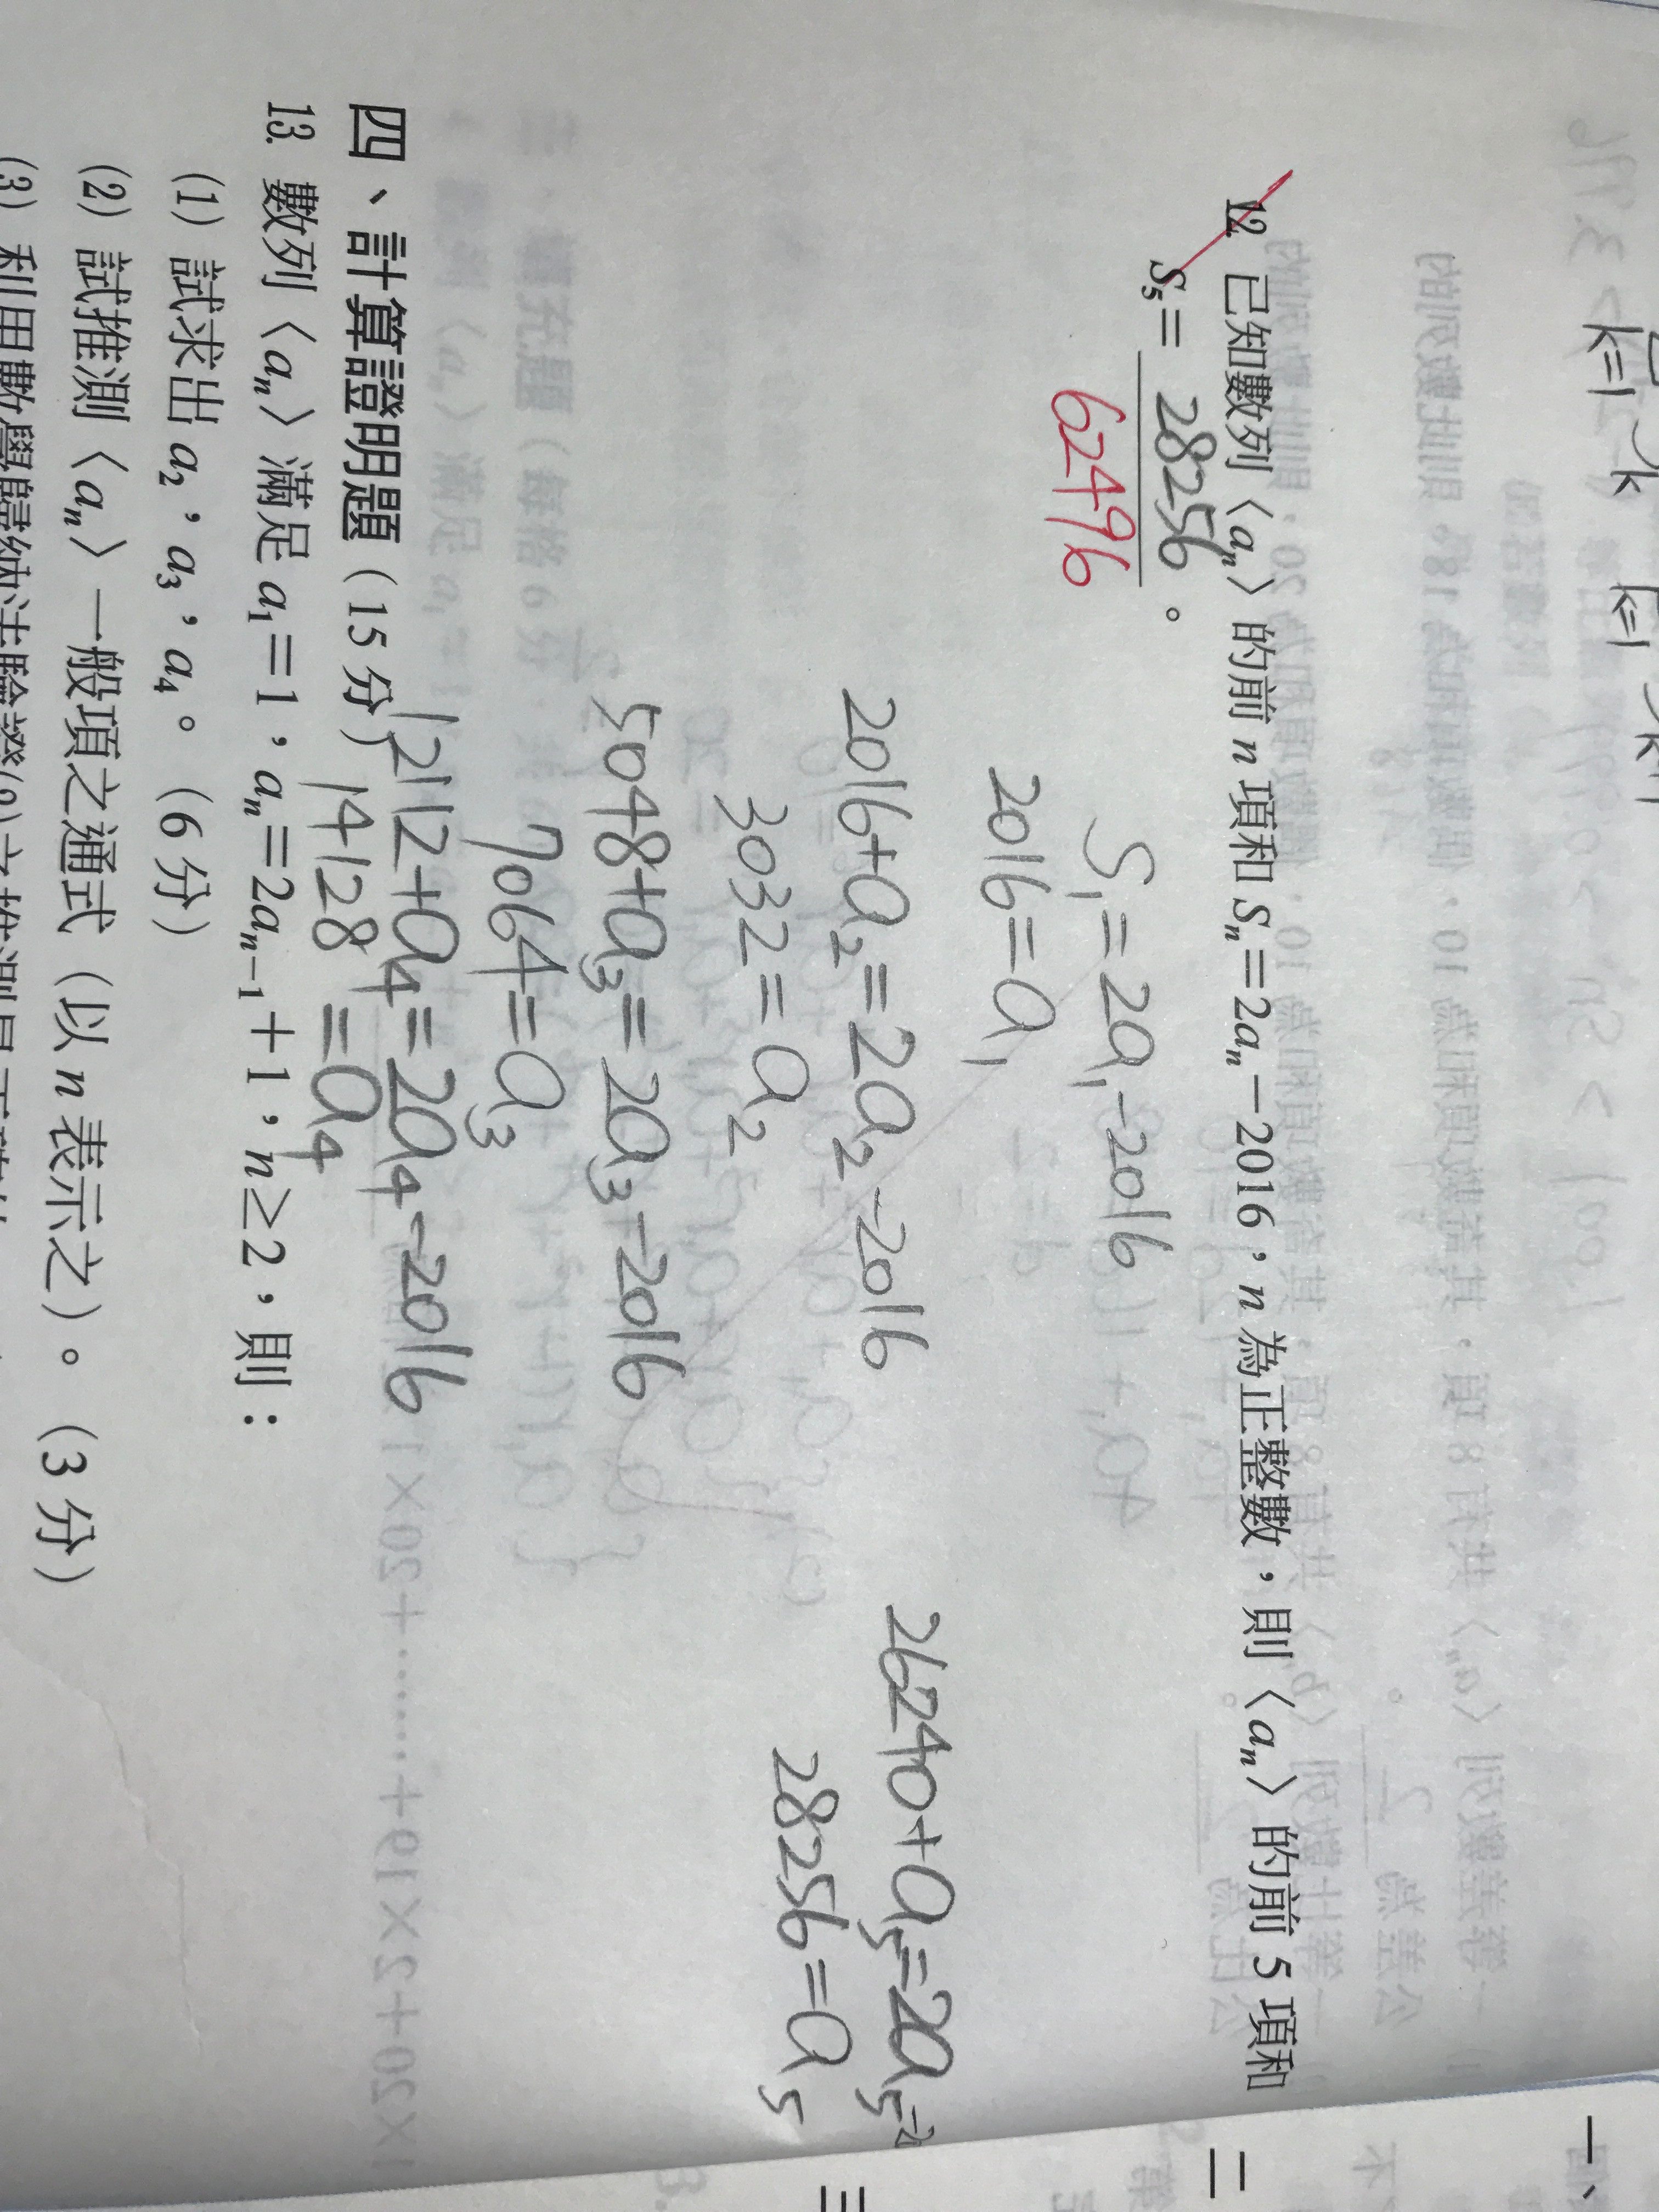 12. 已知數列〈aₙ〉的前 n 項和 Sₙ=2aₙ-2016,n 為正整數,則〈aₙ〉的前 5 項和
S₅= 28256 。
62496
S₁=2a₁-2016
2016=a₁
2016+a₂=2a₂-2016
3032=a₂
5048+a₃=2a₃-2016
7064=a₃
12112+a₄=2a₄-2016
14128=a₄
26240+a₅=2a₅-2
28256=a₅
四、計算證明題(15 分)
13. 數列〈aₙ〉滿足 a₁=1,aₙ=2aₙ₋₁+1,n≥2,則:
(1) 試求出 a₂,a₃,a₄。(6 分)
(2) 試推測〈aₙ〉一般項之通式(以 n 表示之)。(3 分)
(3) 利用數學歸納法驗證(2)之推測是正確的
k=1 k=1
一、
二
三